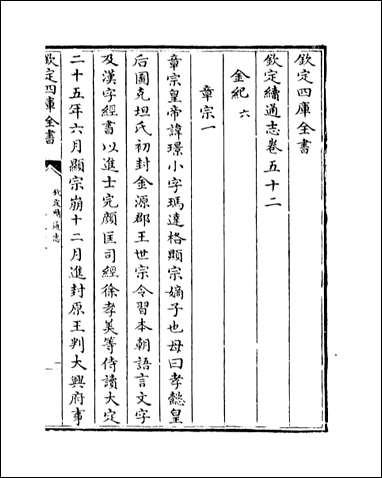 欽定四庫全書
欽定續通志卷五十二
金紀六
章宗一
章宗皇帝諱璟小字瑪達格顯宗嫡子也母曰孝懿皇
后圖克坦氏初封金源郡王世宗令習本朝語言文字
及漢字經書以進士完顔匡司經徐孝美等侍讀大定
二十五年六月顯宗崩十二月進封原王判大興府事
欽定四庫全書
欽定續通志